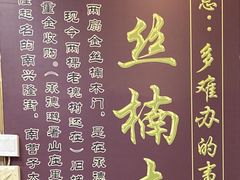 ：多难办的事
丝楠
两扇金丝楠木门，是在承德
现今两棵老槐树还在）旧
重金收购。（承德避暑山庄
隆起名的南兴隆街，南营子大